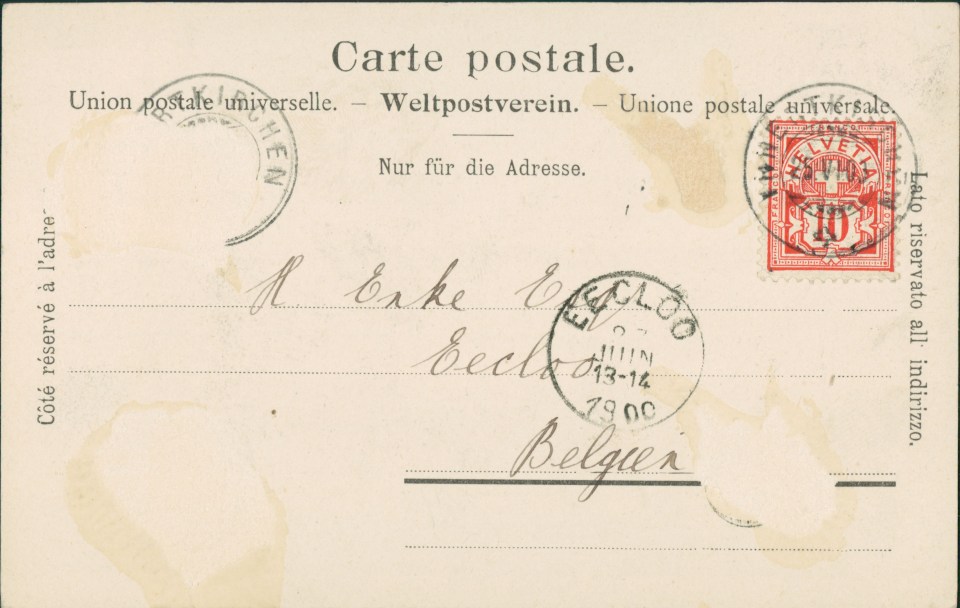 Carte postale.
Union postale universelle. – Weltpostverein. – Unione postale universale.
Nur für die Adresse.
Côté réservé à l'adre
Lato riservato all' indirizzo.
KIRCHEN
HELVETIA
10
EECLOO
JUIN
13-14
1900
Enke
Eecloo
Belgien